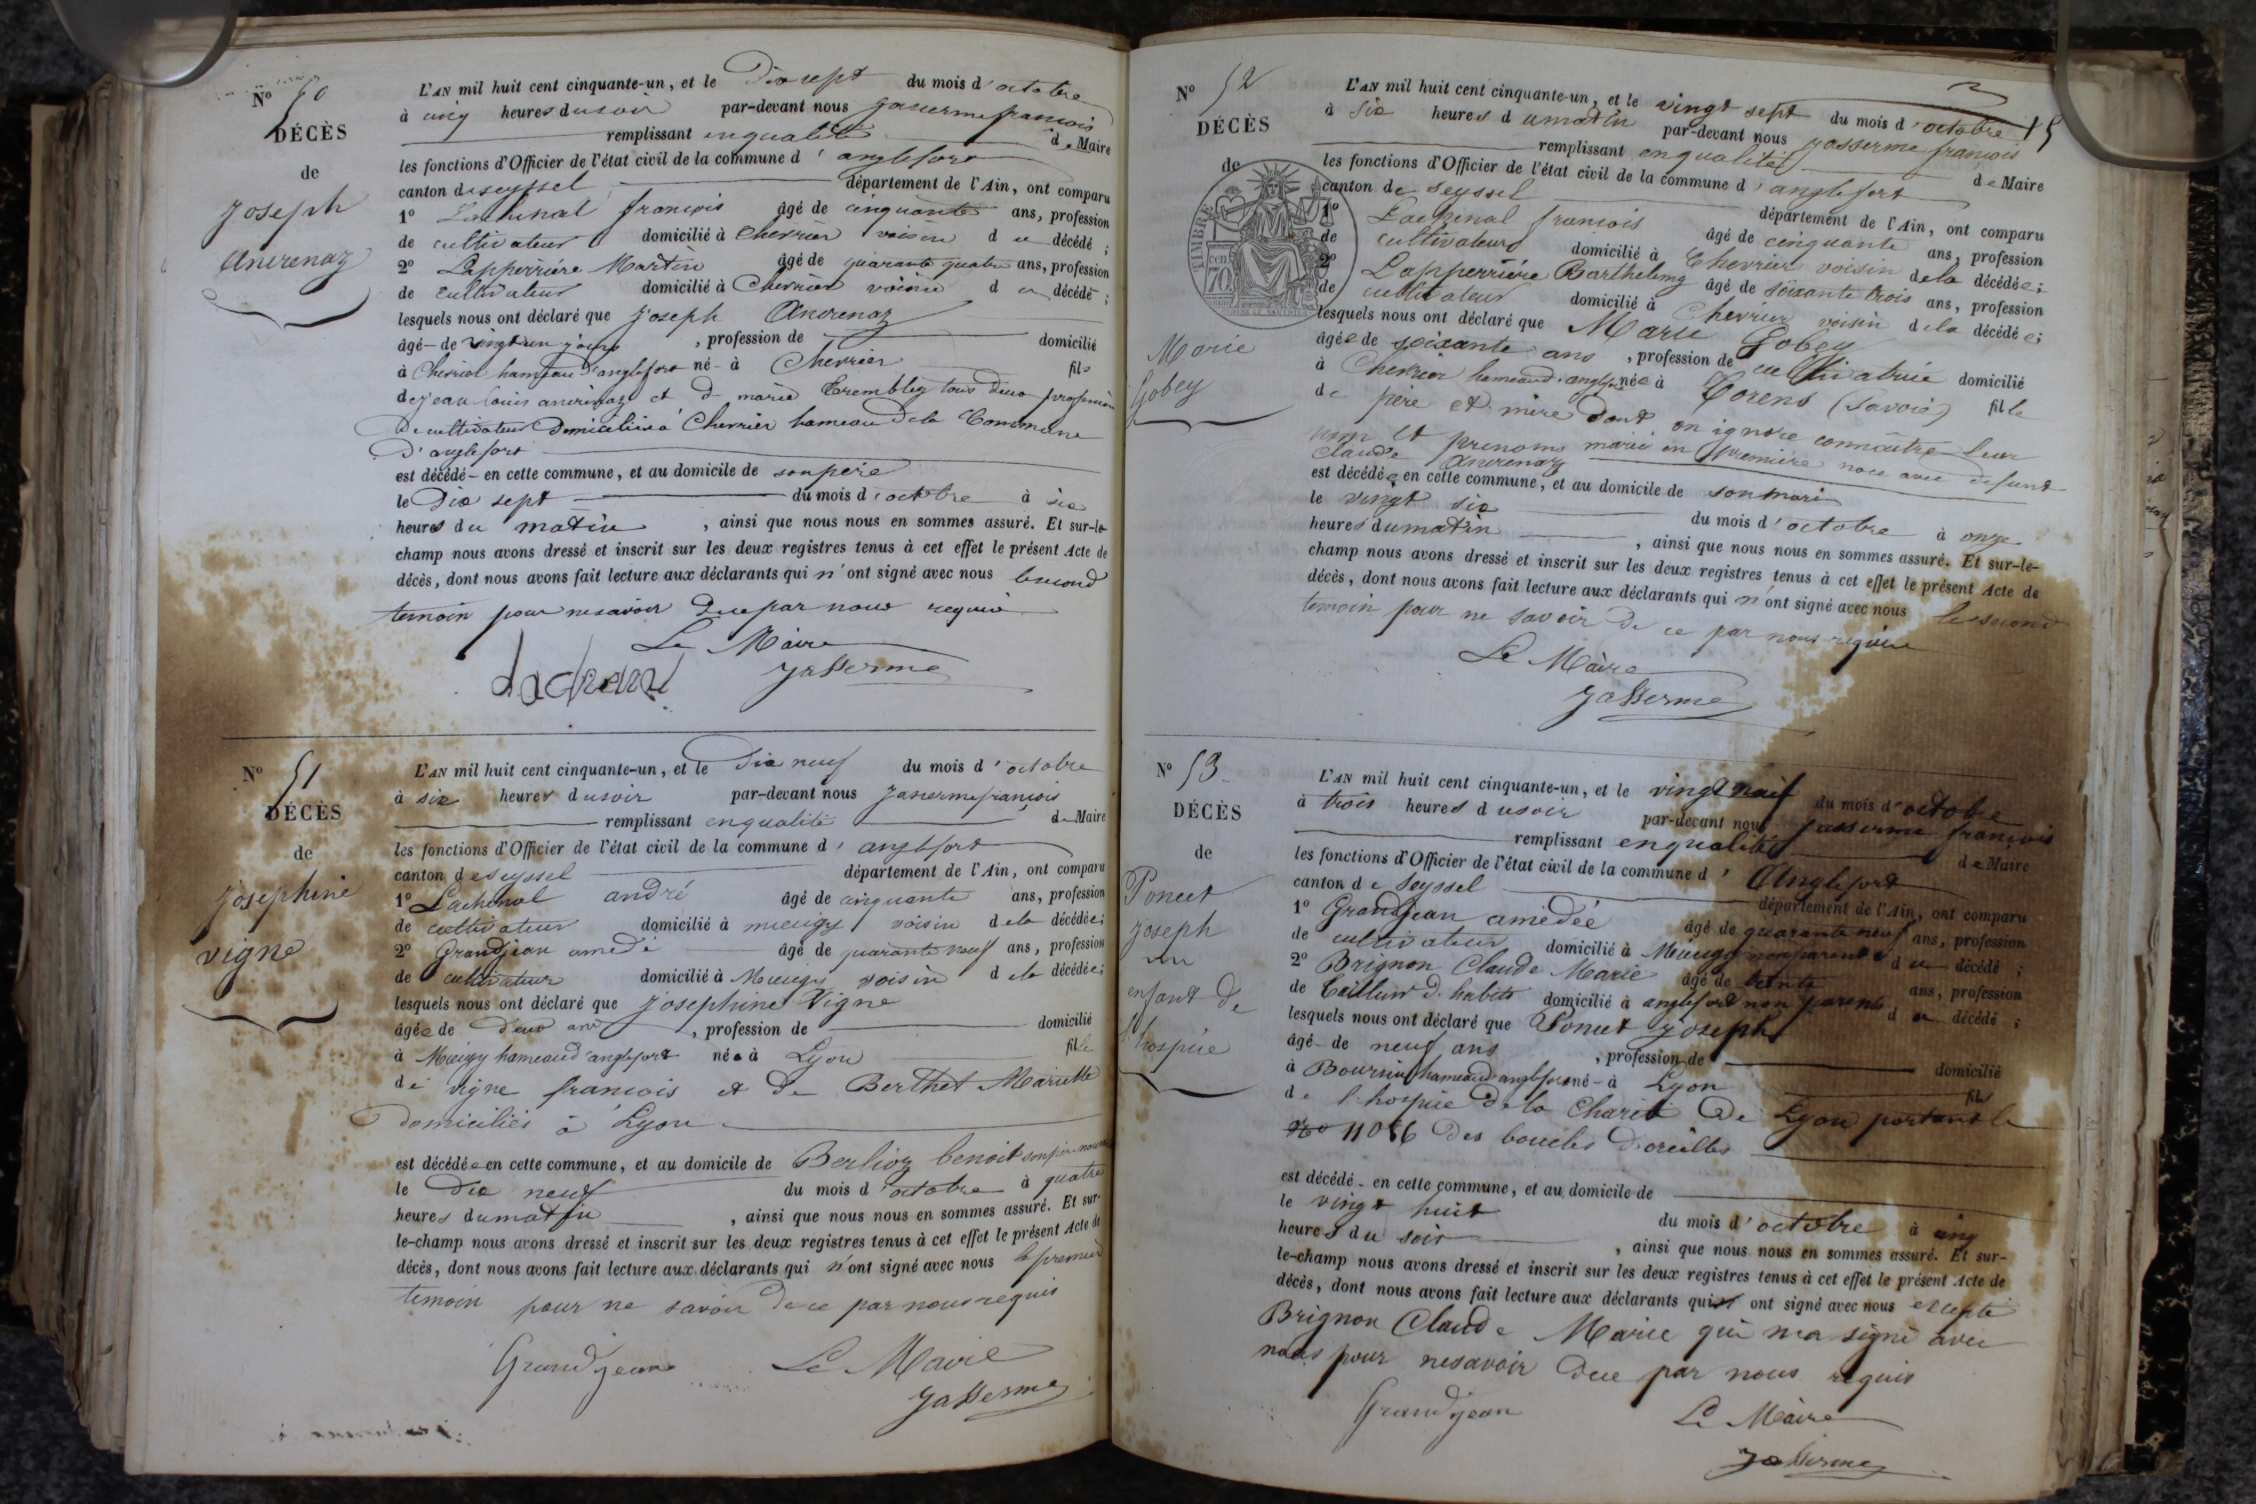 N° 50
DÉCÈS
de
Joseph
Anerenaz
L'AN mil huit cent cinquante-un, et le Dix sept du mois d'octobre
à cinq heures du soir par-devant nous Jasserme françois
remplissant en qualité de Maire
les fonctions d'Officier de l'état civil de la commune d'anglefort
canton de seyssel département de l'Ain, ont comparu
1° Lachenal françois âgé de cinquante ans, profession
de cultivateur domicilié à Chevrier voisin du décédé ;
2° Lapperriére Martin âgé de quarante quatre ans, profession
de cultivateur domicilié à Chevrier voisin du décédé ;
lesquels nous ont déclaré que Joseph Anerenaz
âgé de vingt un jours, profession de domicilié
à Chevrier hameau d'anglefort né à Chevrier fils
de jean louis et de marie Trembley tous deux profession
de cultivateur Domiciliés à Chevrier hameau de la Commune
D'anglefort
est décédé en cette commune, et au domicile de son père
le Dix sept du mois d'octobre à six
heures du matin, ainsi que nous nous en sommes assuré. Et sur-le-
champ nous avons dressé et inscrit sur les deux registres tenus à cet effet le présent Acte de
décès, dont nous avons fait lecture aux déclarants qui n'ont signé avec nous le second
temoin pour ne savoir De ce par nous requis
Le Maire
Lachenal Jasserme
N° 51
DÉCÈS
de
Joséphine
vigne
L'AN mil huit cent cinquante-un, et le Dix neuf du mois d'octobre
à six heures du soir par-devant nous Jasserme françois
remplissant en qualité de Maire
les fonctions d'Officier de l'état civil de la commune d'anglefort
canton de seyssel département de l'Ain, ont comparu
1° Lachenal andré âgé de cinquante ans, profession
de cultivateur domicilié à mieugy voisin de la décédée ;
2° Grandjean amedé âgé de quarante neuf ans, profession
de cultivateur domicilié à Mieugy voisin de la décédée ;
lesquels nous ont déclaré que Joséphine Vigne
âgée de deux ans, profession de domicilié
à Mieugy hameau d'anglefort née à Lyon fille
de vigne francois et De Berthet Mariette
Domiciliés à Lyon
est décédée en cette commune, et au domicile de Berlioz benoit son père
le Dix neuf du mois d'octobre à quatre
heures du matin, ainsi que nous nous en sommes assuré. Et sur-
le-champ nous avons dressé et inscrit sur les deux registres tenus à cet effet le présent Acte de
décès, dont nous avons fait lecture aux déclarants qui n'ont signé avec nous le premier
temoin pour ne savoir De ce par nous requis
Grandjean Le Maire
Jasserme
N° 52
DÉCÈS
de
TIMBRE
70
Marie
Gobey
L'AN mil huit cent cinquante-un, et le vingt sept du mois d'octobre
à Six heures du matin par-devant nous Jasserme françois
remplissant en qualité de Maire
les fonctions d'Officier de l'état civil de la commune d'anglefort
canton de seyssel département de l'Ain, ont comparu
1° Lachenal francois âgé de cinquante ans, profession
de cultivateur domicilié à Chevrier voisin de la décédée ;
2° Lapperriére Barthelemy âgé de soixante trois ans, profession
de cultivateur domicilié à Chevrier voisin de la décédée ;
lesquels nous ont déclaré que Marie Gobey
âgée de soixante ans, profession de cultivatrice domicilié
à Chevrier hameau d'anglefort née à Torens (savoie) fille
de père et mère dont on ignore connaître leur
nom et prenoms marié en première noce avec defunt
Claude Anerenaz
est décédée en cette commune, et au domicile de son mari
le vingt six du mois d'octobre à onze
heures du matin, ainsi que nous nous en sommes assuré. Et sur-le-
champ nous avons dressé et inscrit sur les deux registres tenus à cet effet le présent Acte de
décès, dont nous avons fait lecture aux déclarants qui n'ont signé avec nous le second
temoin pour ne savoir De ce par nous requis
Le Maire
Jasserme
N° 53
DÉCÈS
de
Poncet
Joseph
un
enfant de
l'hospice
L'AN mil huit cent cinquante-un, et le vingt neuf du mois d'octobre
à trois heures du soir par-devant nous Jasserme françois
remplissant en qualité de Maire
les fonctions d'Officier de l'état civil de la commune d'Anglefort
canton de Seyssel département de l'Ain, ont comparu
1° Grandjean amédée âgé de quarante neuf ans, profession
de cultivateur domicilié à Mieugy non parent du décédé ;
2° Brignon Claude Marie âgé de trente ans, profession
de Tailleur d'habits domicilié à anglefort non parent du décédé ;
lesquels nous ont déclaré que Poncet Joseph
âgé de neuf ans, profession de domicilié
à hameau anglefort né à Lyon fils
de l'hospice De la Charité De Lyon portant le
N° 11086 Des boucles D'oreilles
est décédé en cette commune, et au domicile de
le vingt huit du mois d'octobre à cinq
heures du soir, ainsi que nous nous en sommes assuré. Et sur-
le-champ nous avons dressé et inscrit sur les deux registres tenus à cet effet le présent Acte de
décès, dont nous avons fait lecture aux déclarants qui ont signé avec nous excepté
Brignon Claude Marie qui n'a signé avec
nous pour ne savoir De ce par nous requis
Grandjean Le Maire
Jasserme